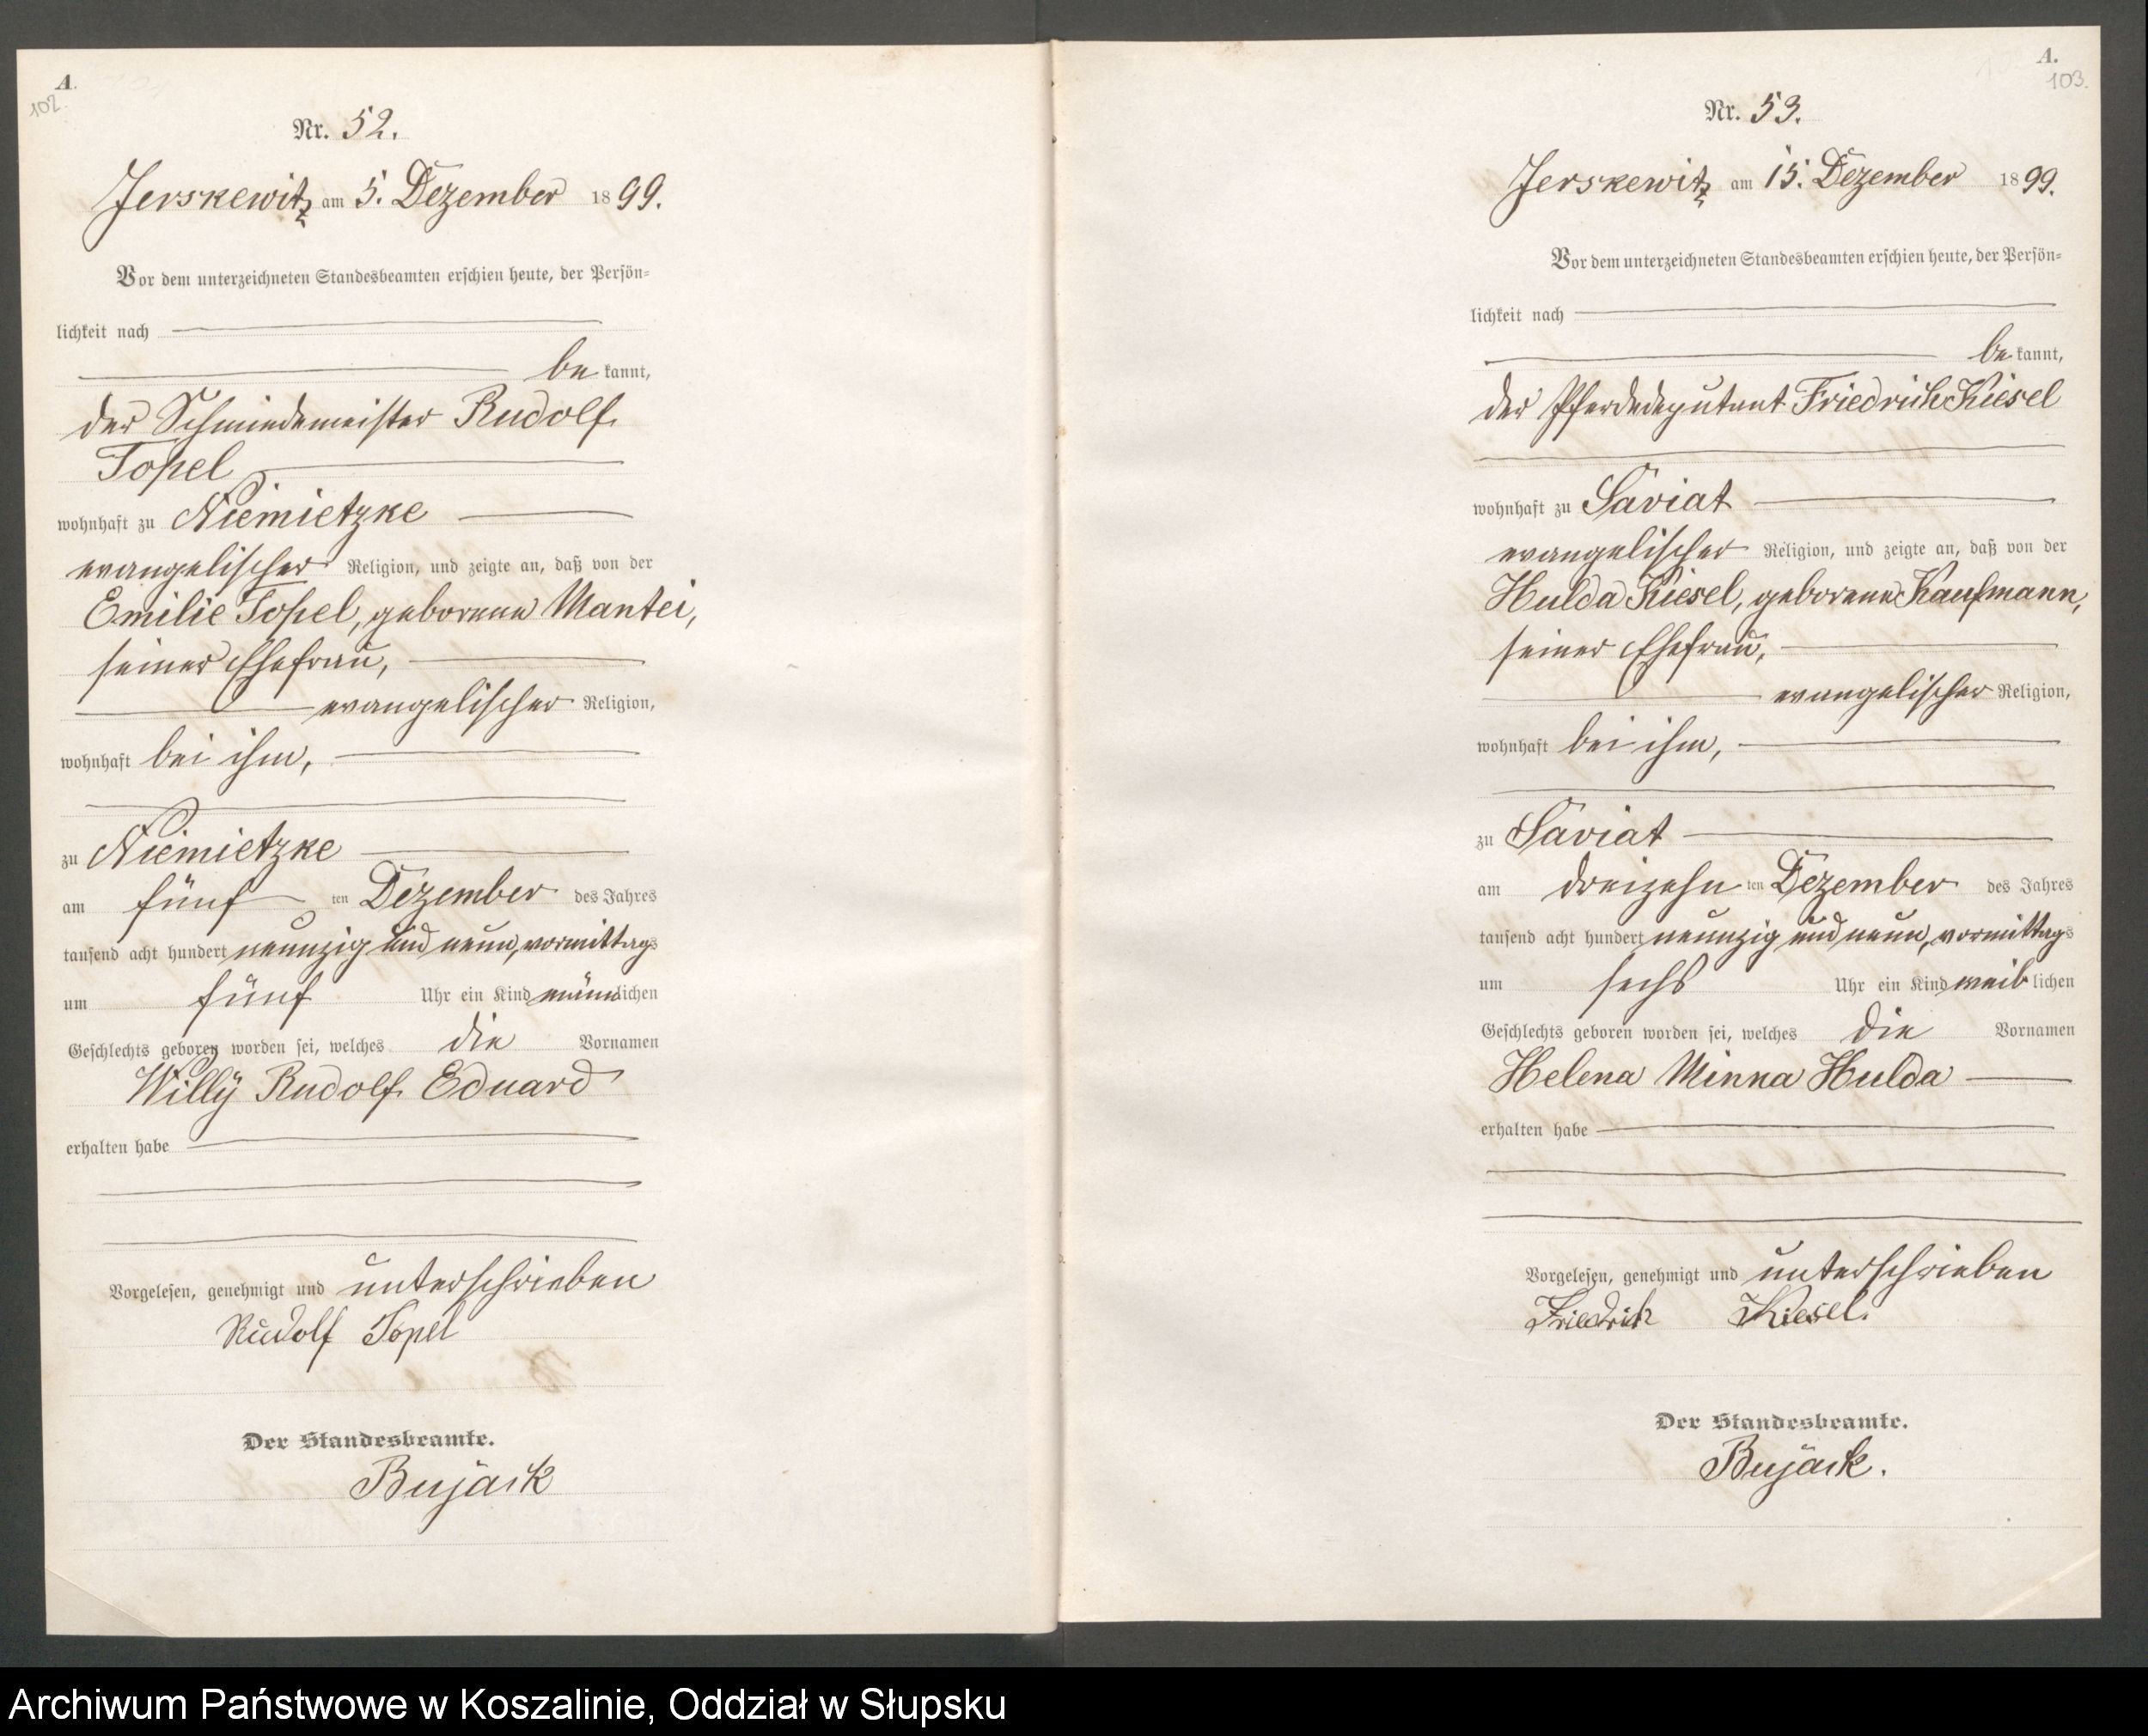 A.
102.
Nr. 52.
Jerskewitz am 5. Dezember 1899.
Vor dem unterzeichneten Standesbeamten erschien heute, der Persön=
lichkeit nach
be kannt,
der Schmiedemeister Rudolf
Topel
wohnhaft zu Niemietzke
evangelischer Religion, und zeigte an, daß von der
Emilie Topel, geborene Mantei,
seiner Ehefrau,
evangelischer Religion,
wohnhaft bei ihm,
zu Niemietzke
am fünf ten Dezember des Jahres
tausend acht hundert neunzig und neun, vormittags
um fünf Uhr ein Kind männlichen
Geschlechts geboren worden sei, welches die Vornamen
Willy Rudolf Eduard
erhalten habe
Vorgelesen, genehmigt und unterschrieben
Rudolf Topel
Der Standesbeamte.
Bujack
A.
103.
Nr. 53.
Jerskewitz am 15. Dezember 1899.
Vor dem unterzeichneten Standesbeamten erschien heute, der Persön=
lichkeit nach
be kannt,
der Pferdedeputant Friedrich Kiesel
wohnhaft zu Saviat
evangelischer Religion, und zeigte an, daß von der
Hulda Kiesel, geborene Kaufmann,
seiner Ehefrau,
evangelischer Religion,
wohnhaft bei ihm,
zu Saviat
am dreizehn ten Dezember des Jahres
tausend acht hundert neunzig und neun, vormittags
um sechs Uhr ein Kind weib lichen
Geschlechts geboren worden sei, welches die Vornamen
Helena Minna Hulda
erhalten habe
Vorgelesen, genehmigt und unterschrieben
Friedrich Kiesel.
Der Standesbeamte.
Bujack.
Archiwum Państwowe w Koszalinie, Oddział w Słupsku